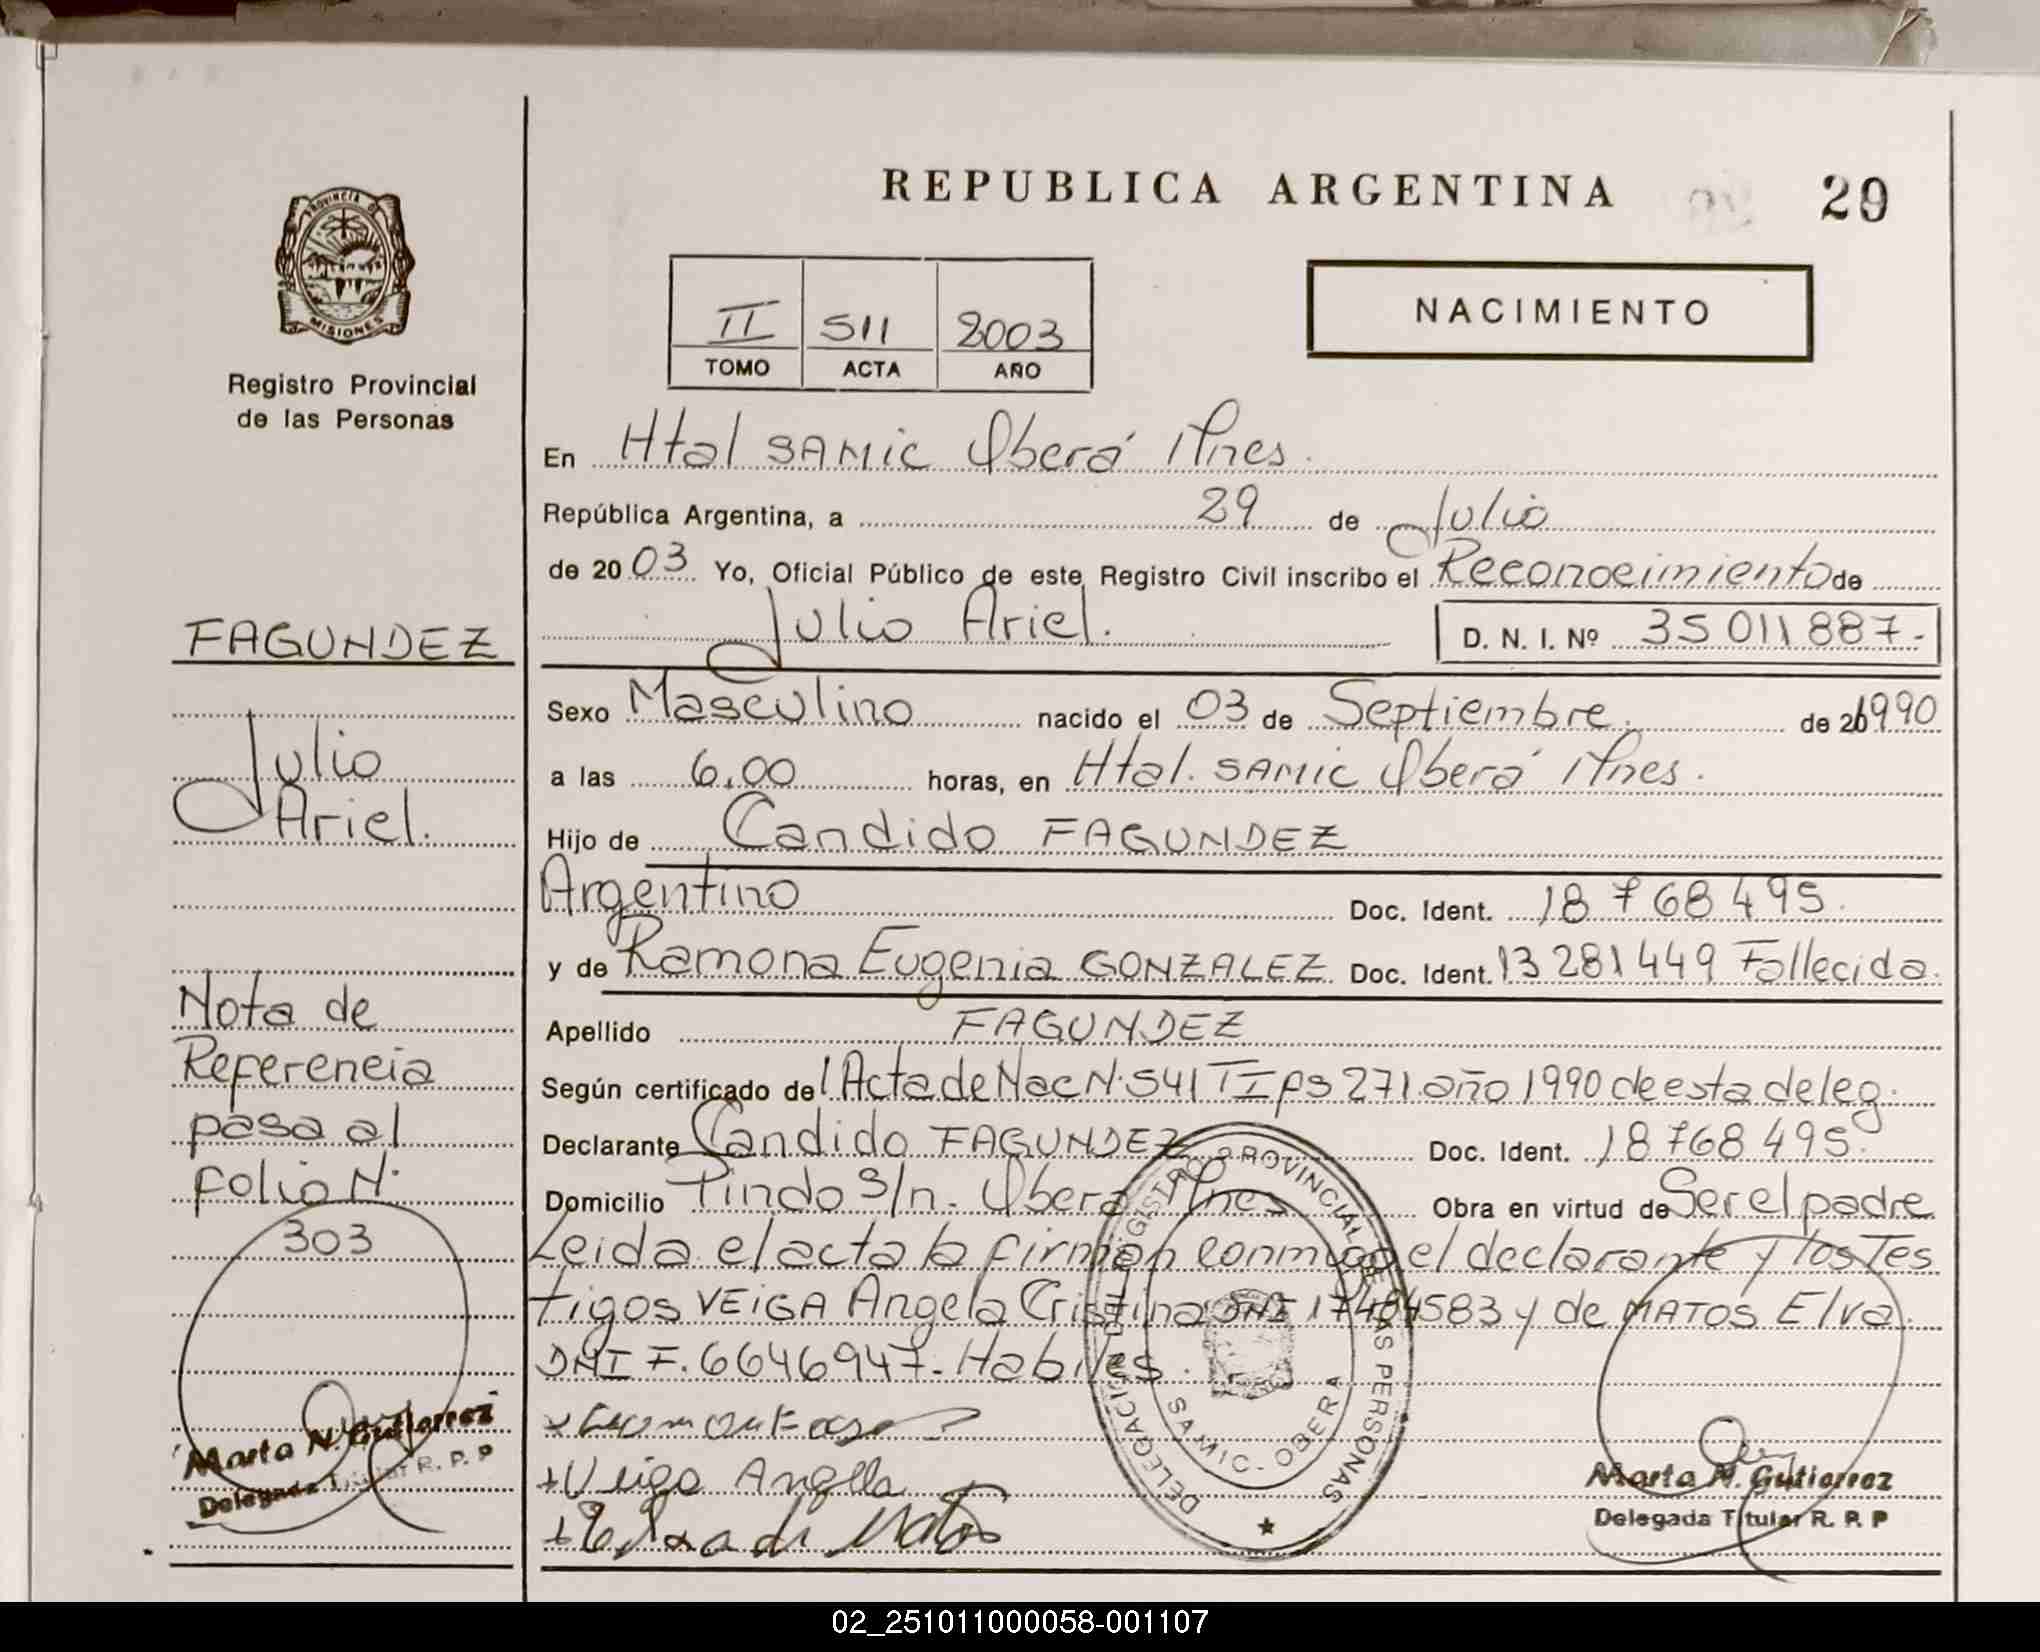 REPUBLICA ARGENTINA 29
PROVINCIA DE
MISIONES
Registro Provincial
de las Personas
NACIMIENTO
II 511 2003
TOMO ACTA AÑO
En Htal SAMIC Oberá Mnes.
República Argentina, a 29 de Julio
de 2003 Yo, Oficial Público de este Registro Civil inscribo el Reconocimiento de
Julio Ariel. D. N. I. Nº 35 011 887.-
Sexo Masculino nacido el 03 de Septiembre. de 1990
a las 6,00 horas, en Htal. SAMIC Oberá Mnes.
Hijo de Candido FAGUNDEZ
Argentino Doc. Ident. 18 768 495.
y de Ramona Eugenia GONZALEZ Doc. Ident. 13 281 449 Fallecida.
Apellido FAGUNDEZ
Según certificado del Acta de Nac N· 541 TI fs 271 año 1990 de esta deleg.
Declarante Candido FAGUNDEZ Doc. Ident. 18 768 495.
Domicilio Pindo S/n. Oberá Mnes Obra en virtud de Ser el padre
Leida el acta la firman conmigo el declarante y los Tes
tigos VEIGA Angela Cristina DNI 17484583 y de MATOS Elva.
DNI F. 6646947.- Habiles.
+Veiga Angela
+Elva de Matos
REGISTRO PROVINCIAL DE LAS PERSONAS
DELEGACION
SAMIC - OBERA
Marta N. Gutierrez
Delegada Titular R. P. P
FAGUNDEZ
Julio
Ariel.
Nota de
Referencia
pasa al
folio N·
303
Marta N. Gutierrez
Delegada Titular R. P. P
02_251011000058-001107